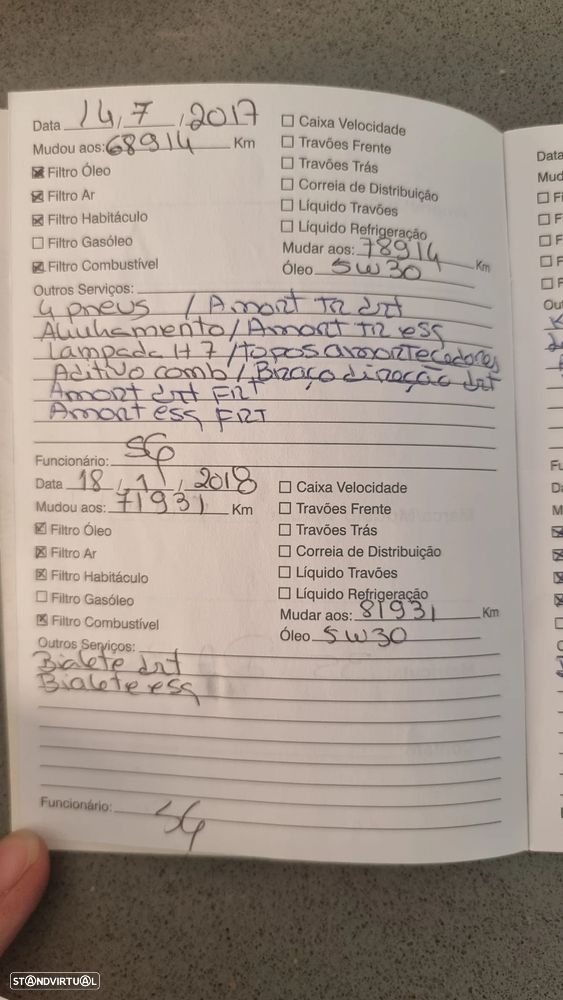 Data 14/7/2017
Mudou aos: 68914 Km
☒ Filtro Óleo
☒ Filtro Ar
☒ Filtro Habitáculo
☐ Filtro Gasóleo
☒ Filtro Combustível
☐ Caixa Velocidade
☐ Travões Frente
☐ Travões Trás
☐ Correia de Distribuição
☐ Líquido Travões
☐ Líquido Refrigeração
Mudar aos: 78914 Km
Óleo 5W30
Outros Serviços:
4 pneus / Amort TR drt
Alinhamento / Amort TR esq
Lampada H7 / topos amortecedores
Aditivo comb / Braço direção drt
Amort drt FRT
Amort esq FRT
Funcionário: SG
Data 18/1/2018
Mudou aos: 71931 Km
☒ Filtro Óleo
☒ Filtro Ar
☒ Filtro Habitáculo
☐ Filtro Gasóleo
☒ Filtro Combustível
☐ Caixa Velocidade
☐ Travões Frente
☐ Travões Trás
☐ Correia de Distribuição
☐ Líquido Travões
☐ Líquido Refrigeração
Mudar aos: 81931 Km
Óleo 5W30
Outros Serviços:
Bialete drt
Bialete esq
Funcionário: SG
Data
STANDVIRTUAL